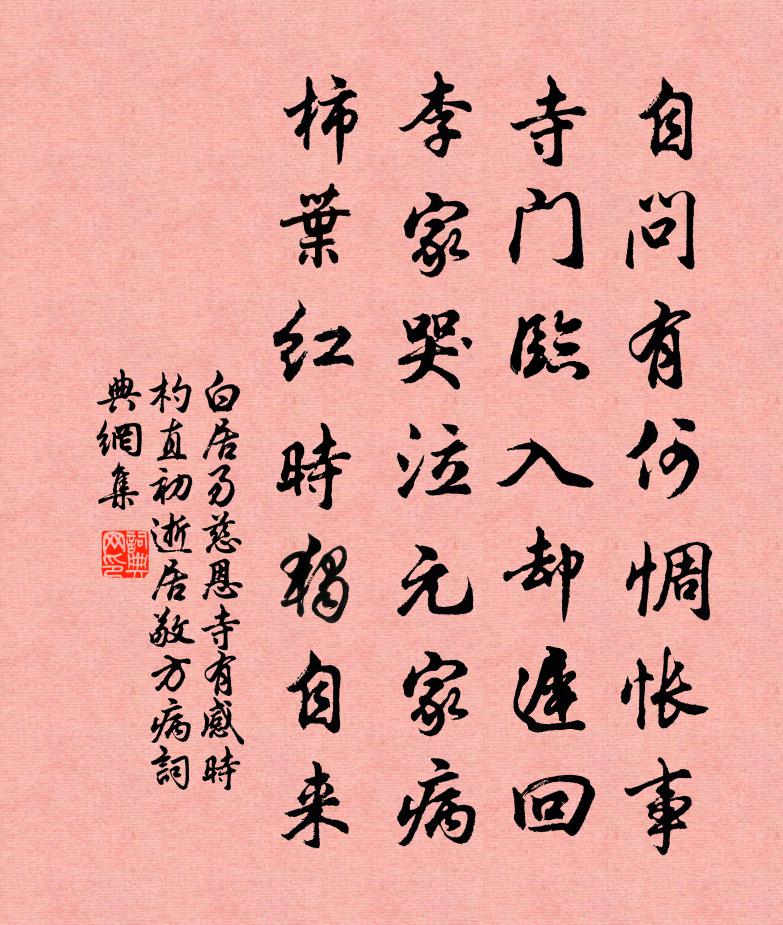 自问有何惆怅事
寺门臨入却遲回
李家哭泣元家病
柿葉红時独自来
白居易慈恩寺有感時
杓直初逝居敬方病詞
典網集
詞典网印